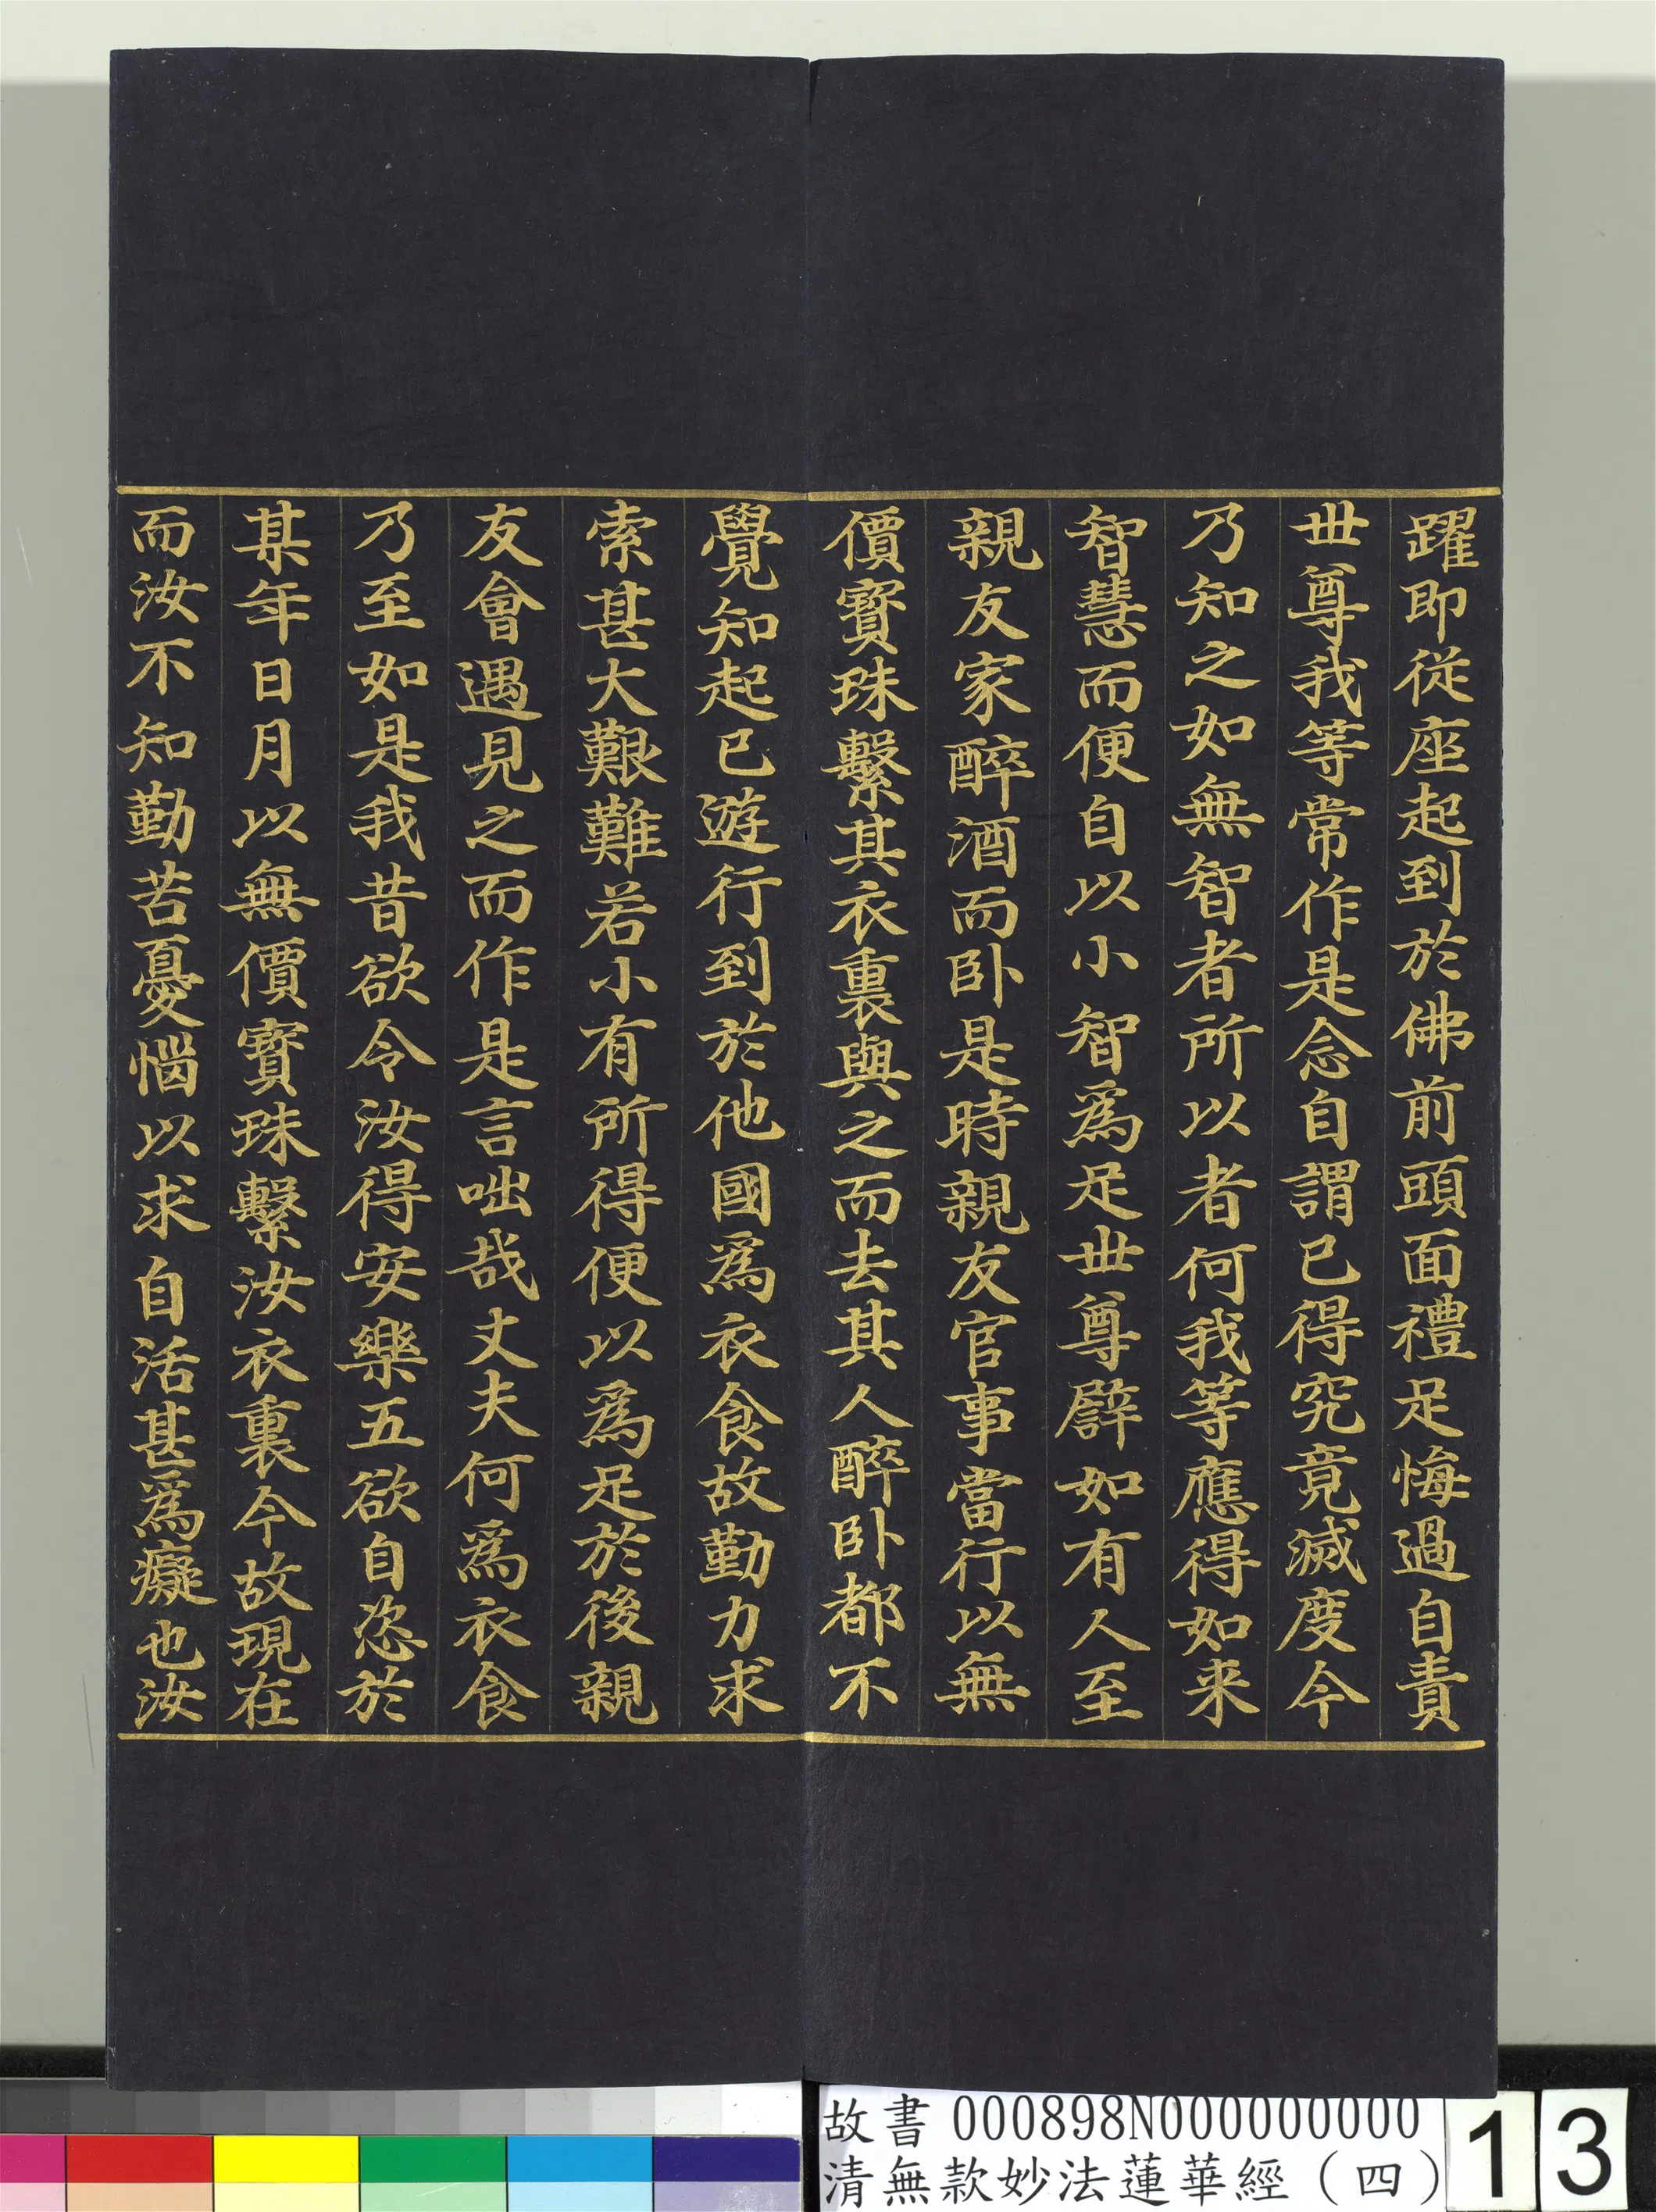 躍即從座起到於佛前頭面禮足悔過自責
世尊我等常作是念自謂已得究竟滅度今
乃知之如無智者所以者何我等應得如来
智慧而便自以小智為足世尊譬如有人至
親友家醉酒而卧是時親友官事當行以無
價寶珠繫其衣裏與之而去其人醉卧都不
覺知起已遊行到於他國為衣食故勤力求
索甚大艱難若小有所得便以為足於後親
友會遇見之而作是言咄哉丈夫何為衣食
乃至如是我昔欲令汝得安樂五欲自恣於
某年日月以無價寶珠繫汝衣裏今故現在
而汝不知勤苦憂惱以求自活甚為癡也汝
故書 000898N000000000
清無款妙法蓮華經（四）
13